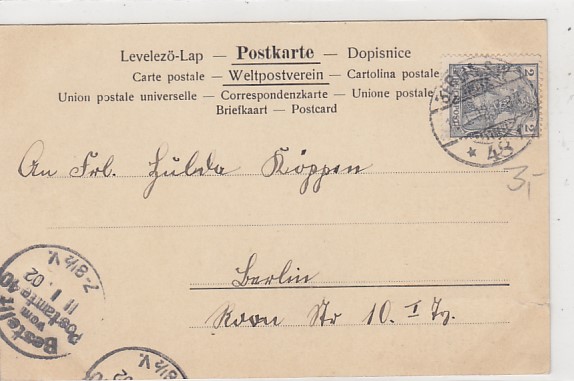 Levelező-Lap — Postkarte — Dopisnice
Carte postale — Weltpostverein — Cartolina postale
Union postale universelle — Correspondenzkarte — Unione postale
Briefkaart — Postcard
2 2
* 49
3,-
An Frl. Hulda Köppen
Berlin
Roon Str 10. I Tr.
Bestellt
vom
Postamte 40
11 1 02
7-8½ V.
8½ V.
02